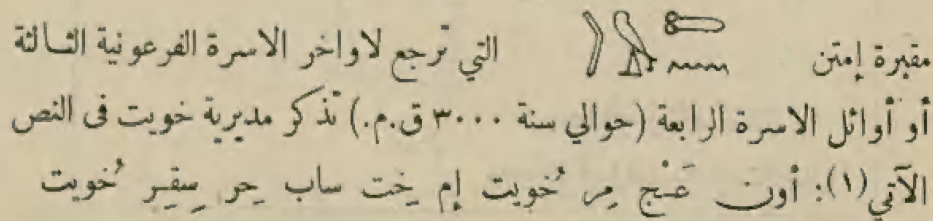 مقبرة إمتن 𓌳𓅓𓍿𓈖 التي ترجع لاواخر الاسرة الفرعونية الثالثة
أو أوائل الاسرة الرابعة (حوالي سنة ٣٠٠٠ ق.م.) تذكر مديرية خويت فى النص
الآتي(١): أون عَـنْـج مِر خُويت إم خِت ساب حِر سِقِـر خُويت